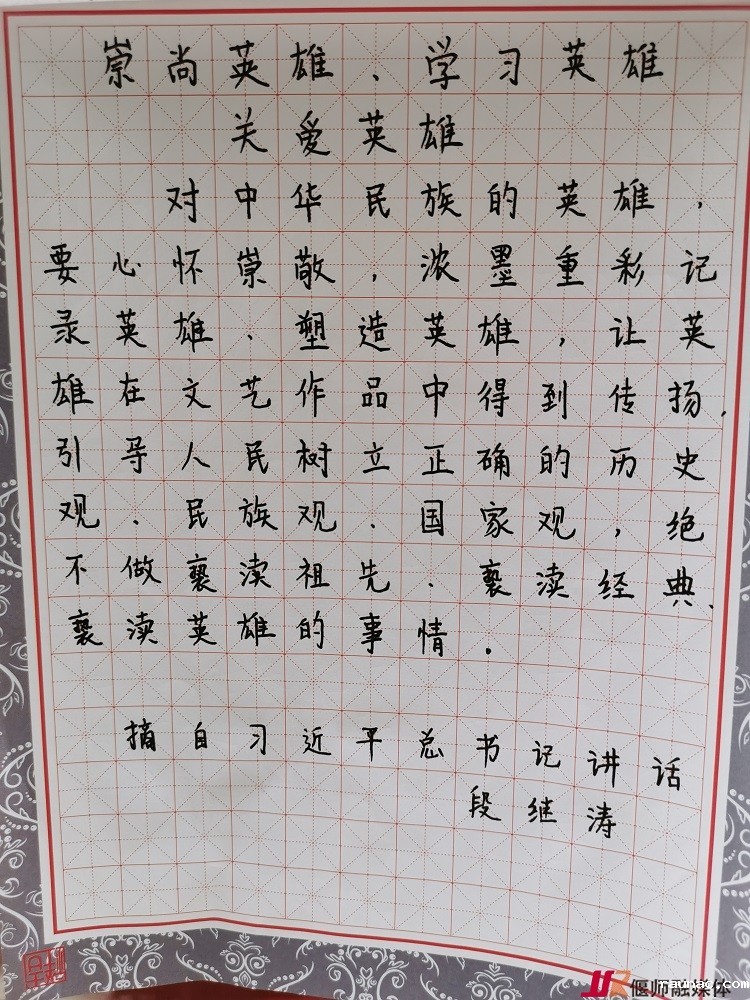 崇尚英雄、学习英雄
关爱英雄
对中华民族的英雄，
要心怀崇敬，浓墨重彩记
录英雄、塑造英雄，让英
雄在文艺作品中得到传扬，
引导人民树立正确的历史
观、民族观、国家观，绝
不做亵渎祖先、亵渎经典、
亵渎英雄的事情。
摘自习近平总书记讲话
段继涛
偃师融媒体